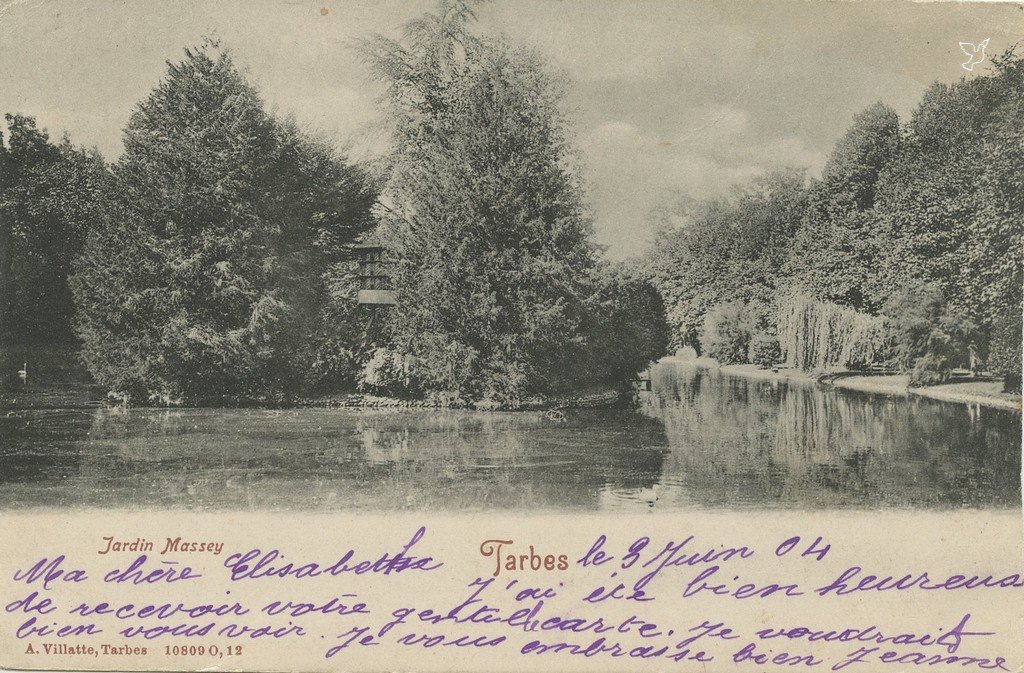 Jardin Massey
Tarbes le 3 Juin 04
Ma chère Elisabeth
J'ai éte bien heureuse
de recevoir votre gentille carte. Je voudrait
bien vous voir. Je vous embrasse bien Jeanne
A. Villatte, Tarbes 10809 O, 12